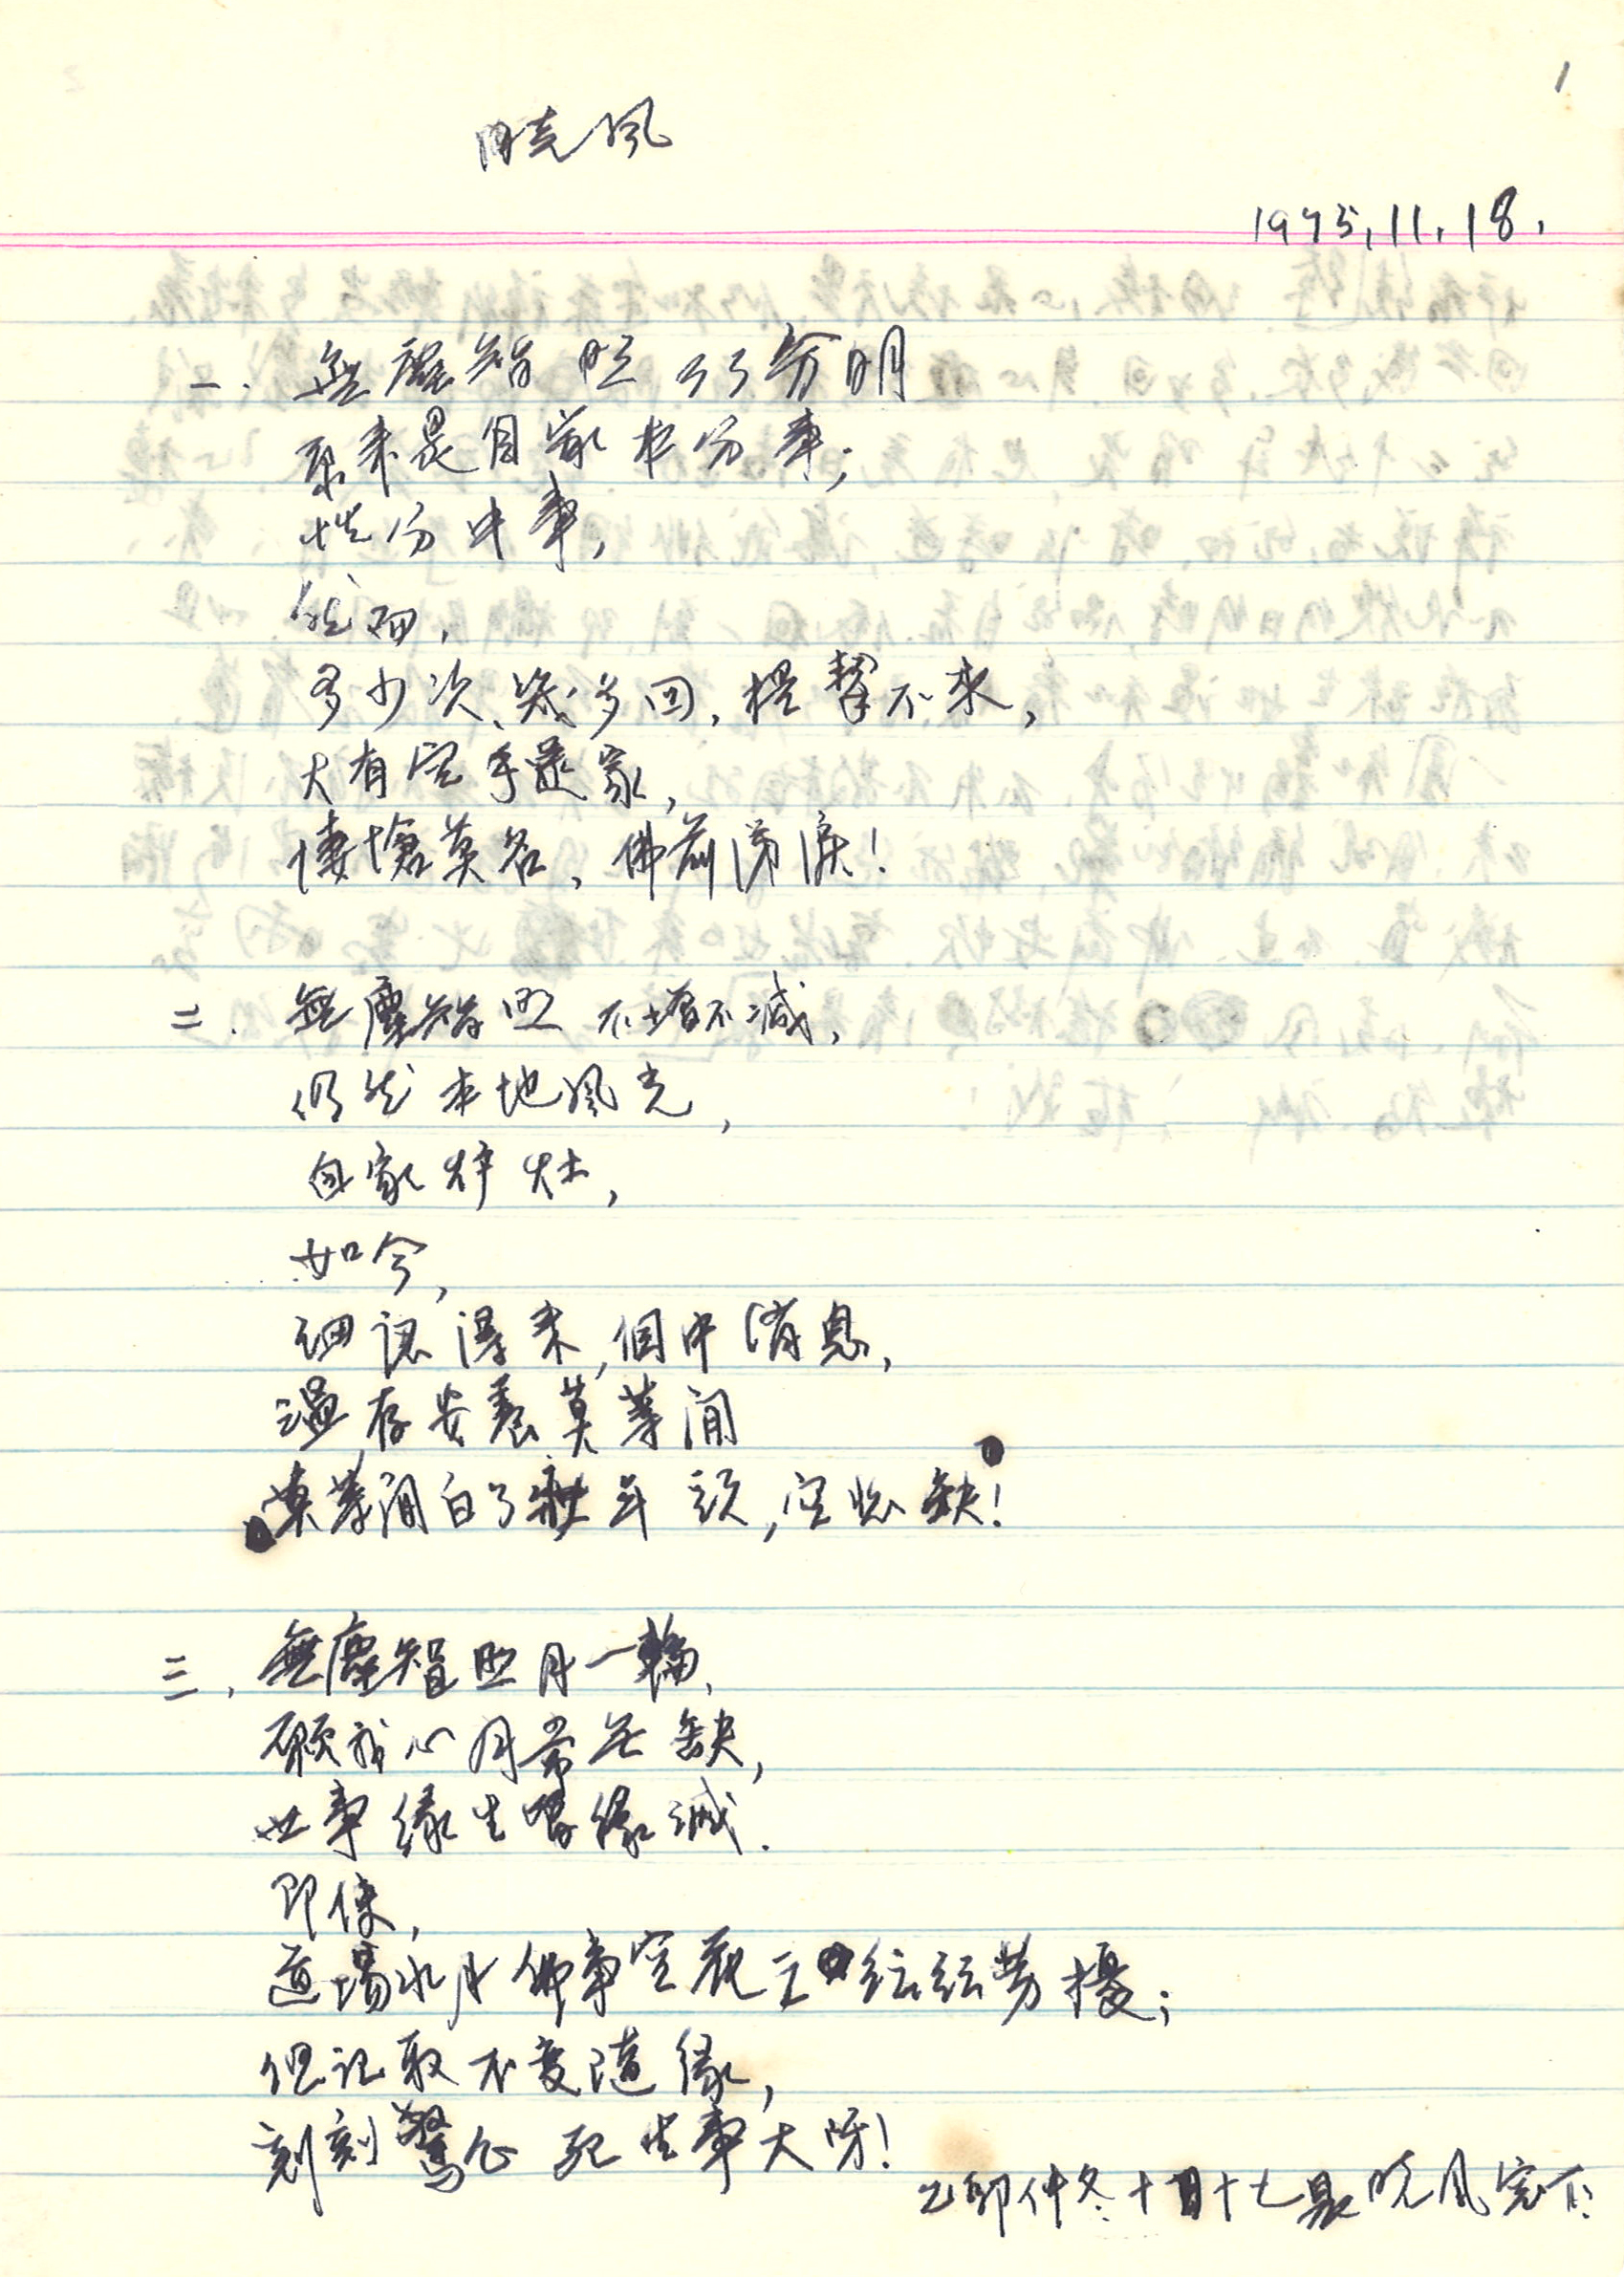 1
曉風
1975.11.18.
一. 無塵智照 歷歷分明
原來是自家本分事;
性分中事,
然而,
多少次、幾多回,提挈不來,
大有空手還家,
悽愴莫名、佛前涕淚!
二. 無塵智照 不增不減,
仍然本地風光,
自家炉灶,
如今,
細認得來,個中消息,
溫存安養莫等閒
莫等閒白了少年頭,空悲缺!
三. 無塵智照月一輪,
願我心月常無缺,
世事緣生暨緣滅.
即使,
道場水月佛事空花之紜紜勞擾;
但記取不变隨緣,
刻刻驚心 死生事大呀!
乙卯仲冬十月十七晨曉風窗下